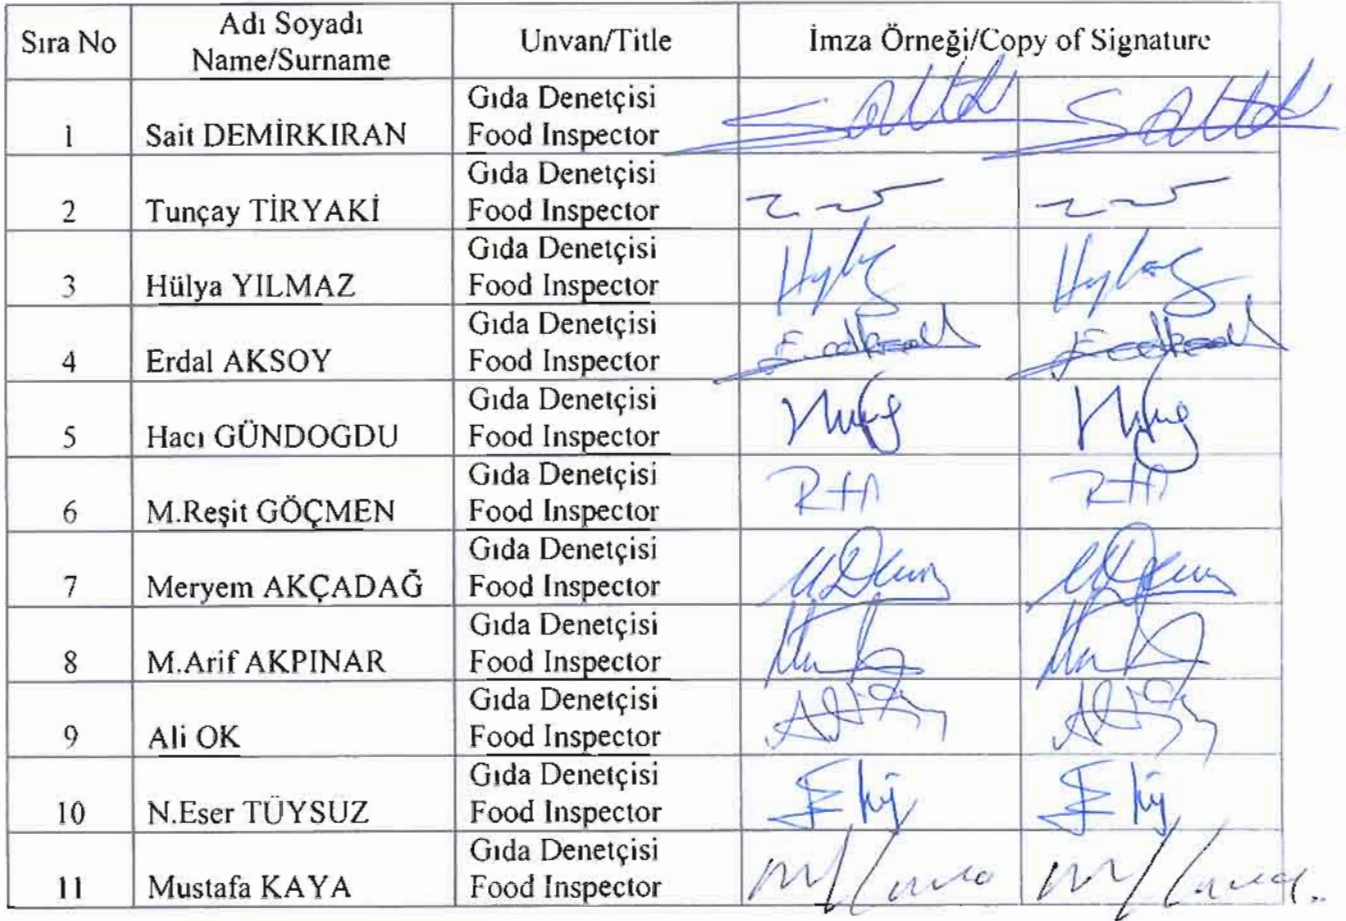 Sıra No
Adı Soyadı
Name/Surname
Unvan/Title
İmza Örneği/Copy of Signature
1
Sait DEMİRKIRAN
Gıda Denetçisi
Food Inspector
2
Tunçay TİRYAKİ
Gıda Denetçisi
Food Inspector
3
Hülya YILMAZ
Gıda Denetçisi
Food Inspector
4
Erdal AKSOY
Gıda Denetçisi
Food Inspector
5
Hacı GÜNDOGDU
Gıda Denetçisi
Food Inspector
6
M.Reşit GÖÇMEN
Gıda Denetçisi
Food Inspector
7
Meryem AKÇADAĞ
Gıda Denetçisi
Food Inspector
8
M.Arif AKPINAR
Gıda Denetçisi
Food Inspector
9
Ali OK
Gıda Denetçisi
Food Inspector
10
N.Eser TÜYSUZ
Gıda Denetçisi
Food Inspector
11
Mustafa KAYA
Gıda Denetçisi
Food Inspector